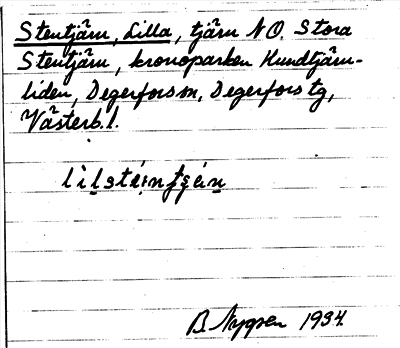 Stentjärn, Lilla, tjärn NO. Stora
Stentjärn, kronoparken Hundtjärn-
liden, Degerfors sn, Degerfors tg,
Västerb. l.
B. Nygren 1934.